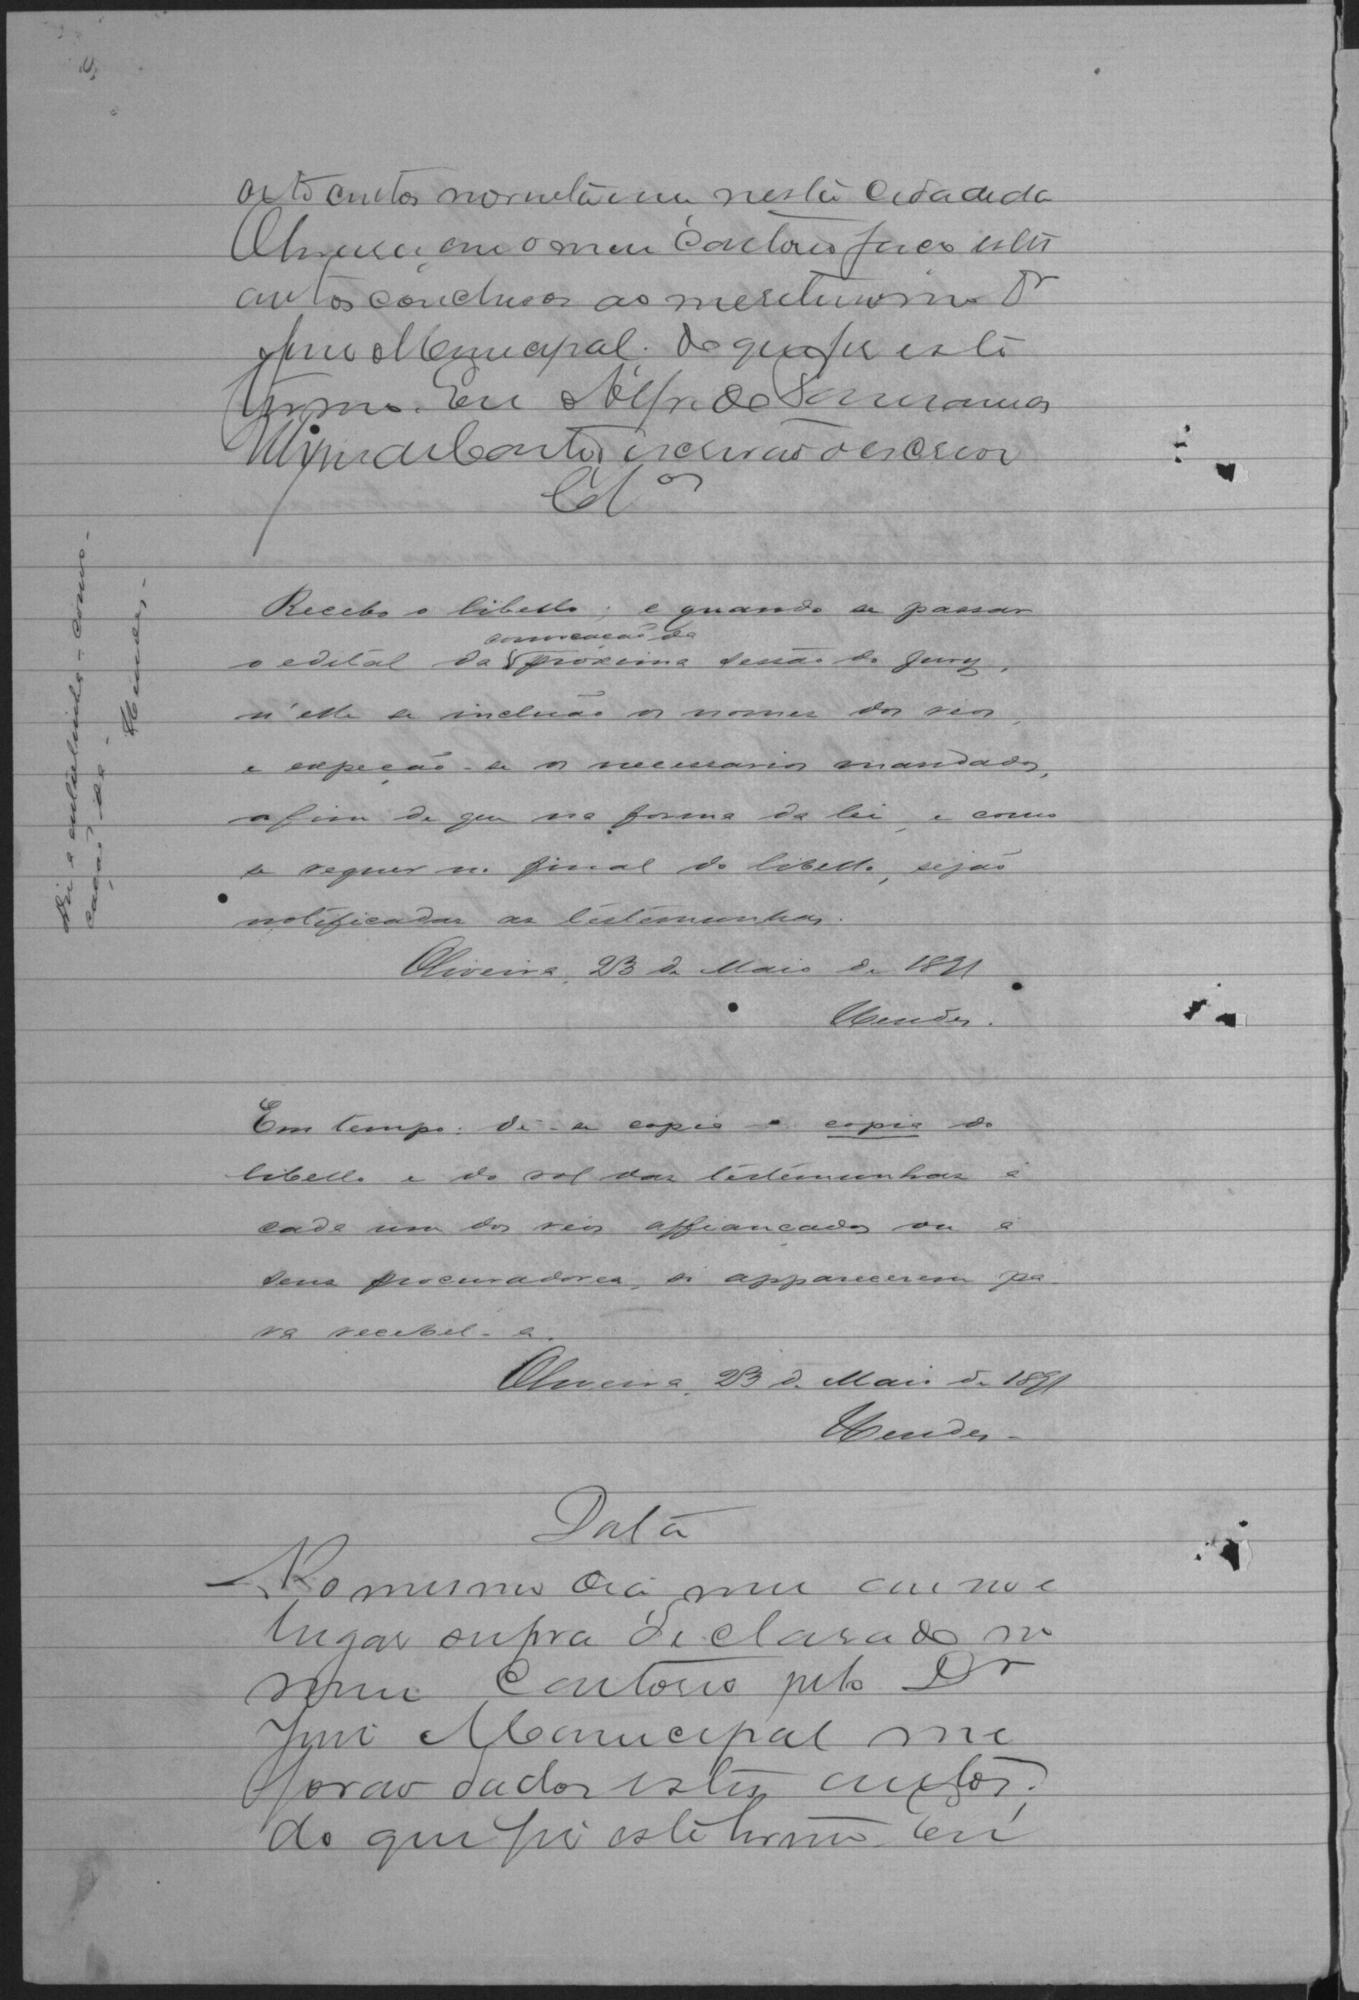 oitocentos noventa e um nesta Cidade da
Oliveira, em o meu Cartorio faço estes
autos conclusos ao meretissimo Dr
Juiz Municipal. do que fiz este
termo. Eu Alfredo
escrivão o escrevi
Clos
Recebo o libello; e quando se passar
convocação da
o edital da proxima sessão do Jury,
n'elle se inclúão os nomes dos réos,
e expeção-se os necessarios mandados,
afim de que na forma da lei, e como
se requer no final do libello, sejão
notificadas as testemunhas.
Oliveira, 23 de Maio de 1891
Mendes.
Em tempo: dê-se copia e copia do
libello e do rol das testemunhas á
cada um dos réos affiançados ou á
seus procuradores, si apparecerem pa-
ra recebel-a.
Oliveira, 23 de Maio de 1891
Mendes-
Data
No mesmo dia mez anno e
lugar supra declarado no
meu Cartorio pelo Dr
Juiz Municipal me
forão dados estes autos.
do que fiz este termo. Eu
Diz a entrelinha - convo-
cação da -
Mendes.